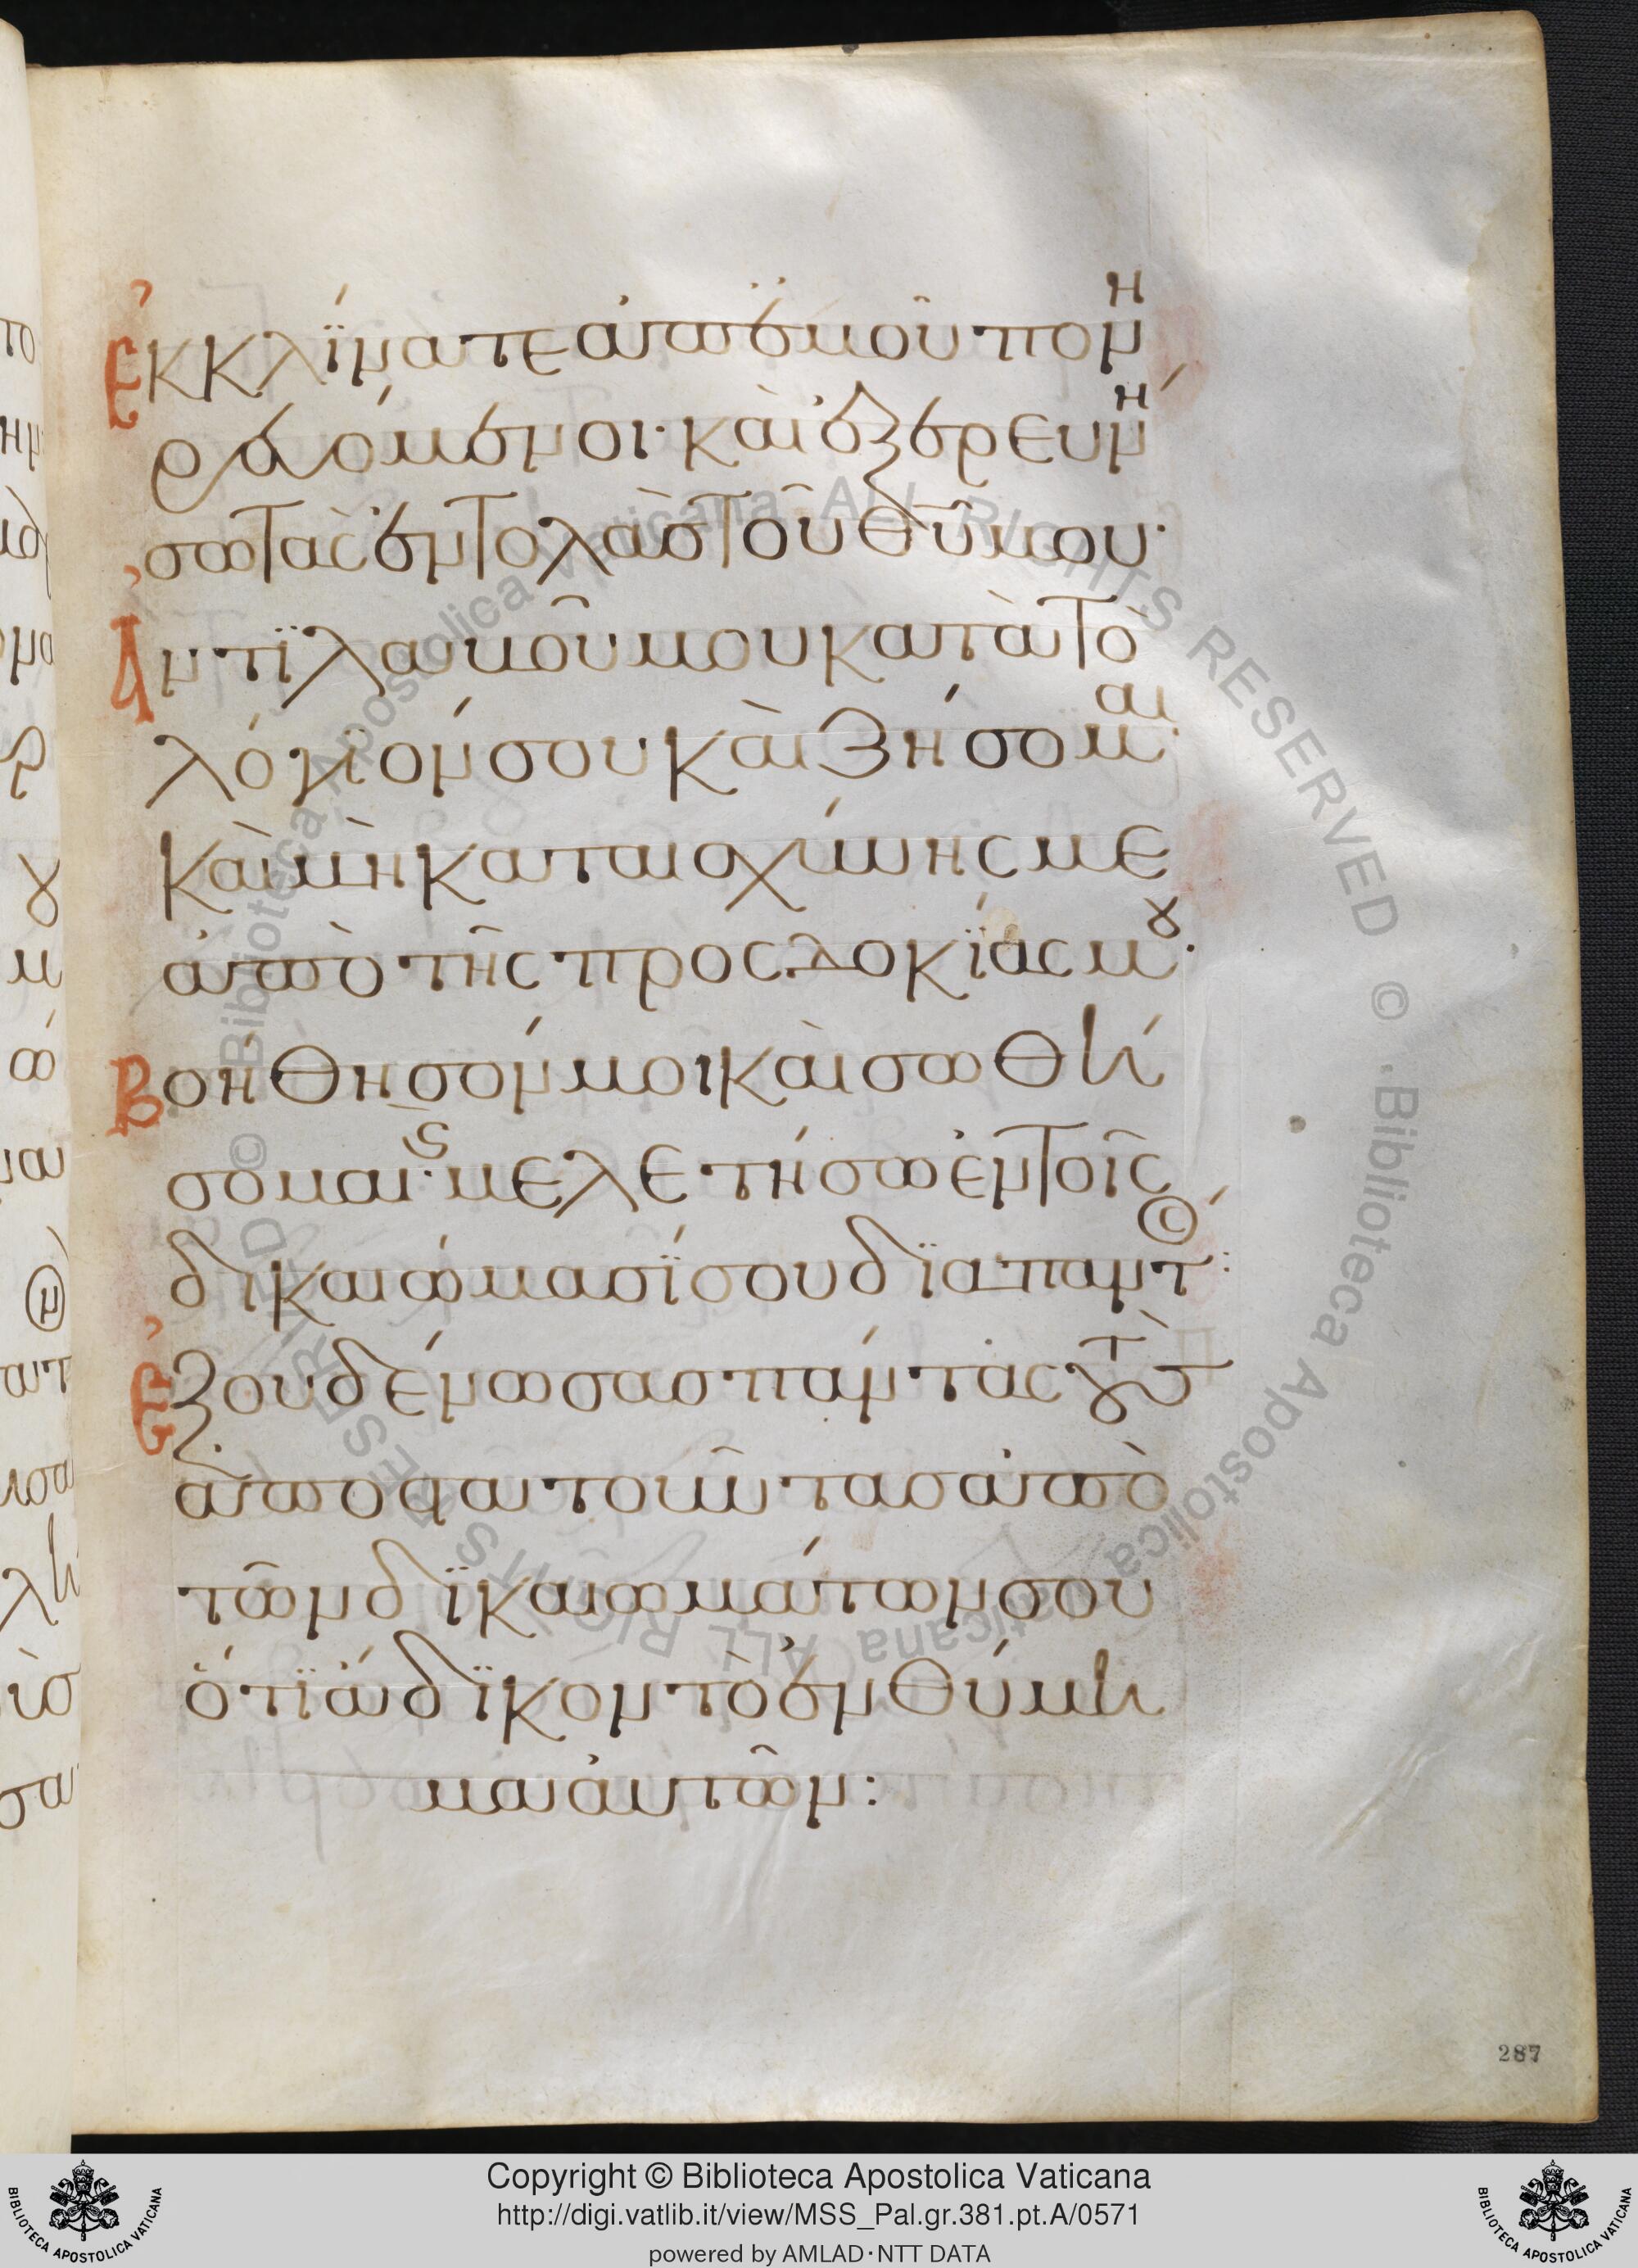 Ἐκκλίνατε ἀπ' ἐμοῦ πονη
ρευόμενοι· καὶ ἐξερευνή
σω τὰς ἐντολὰς τοῦ θ̅υ̅ μου·
Ἀντιλαβοῦ μου κατὰ τὸ
λόγιόν σου καὶ ζήσομαι·
καὶ μὴ καταισχύνῃς με
ἀπὸ τῆς προσδοκίας μου·
Βοήθησόν μοι καὶ σωθή
σομαι· ϗ μελετήσω ἐν τοῖς
δικαιώμασί σου διαπαντός:
Ἐξουδένωσας πάντας τοὺς
ἀποστατοῦντας ἀπὸ
τῶν δικαιωμάτων σου
ὅτι ἄδικον τὸ ἐνθύμη
μα αὐτῶν:
287
© Biblioteca Apostolica Vaticana ALL RIGHTS RESERVED
© Biblioteca Apostolica Vaticana ALL RIGHTS RESERVED
Copyright © Biblioteca Apostolica Vaticana
http://digi.vatlib.it/view/MSS_Pal.gr.381.pt.A/0571
powered by AMLAD·NTT DATA
BIBLIOTECA APOSTOLICA VATICANA
BIBLIOTECA APOSTOLICA VATICANA